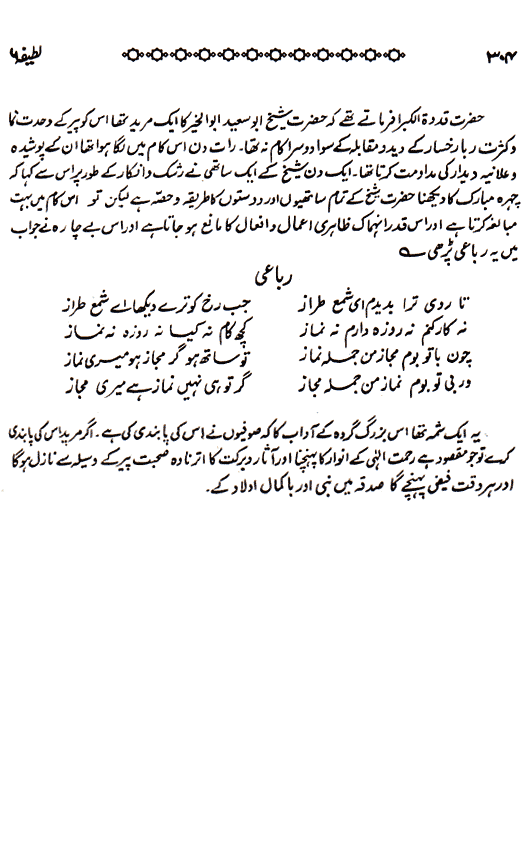 ۳۰۴ لطیفہ ۶
حضرت قدوۃ الکبرا فرماتے تھے کہ حضرت شیخ ابو سعید ابوالخیر کا ایک مرید تھا اس کو پیر کے وحدت نما
وکثرت ربا رخسار کے دید و مقابلہ کے سوا دوسرا کام نہ تھا۔ رات دن اس کام میں لگا ہوا تھا ان کے پوشیدہ
و علانیہ دیدار کی مداومت کرتا تھا۔ ایک دن شیخ کے ایک ساتھی نے رشک و انکار کے طور پر اس سے کہا کہ
چہرہ مبارک کا دیکھنا حضرت شیخ کے تمام ساتھیوں اور دوستوں کا طریقہ و حصہ ہے لیکن تو اس کام میں بہت
مبالغہ کرتا ہے اور اس قدر انہماک ظاہری اعمال و افعال کا مانع ہو جاتا ہے اور اس بے چارہ نے جواب
میں یہ رباعی پڑھی ے
رباعی
تا ردی ترا بدیدم ای شمع طراز جب رخ کو ترے دیکھا اے شمع طراز
نہ کار کنم نہ روزہ دارم نہ نماز کچھ کام نہ کیا نہ روزہ نہ نماز
چون باتو بوم مجاز من جملہ نماز تو ساتھ ہو گر مجاز ہو میری نماز
ور بی تو بوم نماز من جملہ مجاز گر تو ہی نہیں نماز ہے میری مجاز
یہ ایک شمہ تھا اس بزرگ گروہ کے آداب کا کہ صوفیوں نے اس کی پابندی کی ہے۔ اگر مرید اس کی پابندی
کرے تو جو مقصود ہے رحمت الٰہی کے انوار کا پہنچنا اور آثار و برکت کا اترنا وہ صحبت پیر کے وسیلہ سے نازل ہوگا
اور ہر وقت فیض پہنچے گا صدقہ میں نبی اور باکمال اولاد کے۔